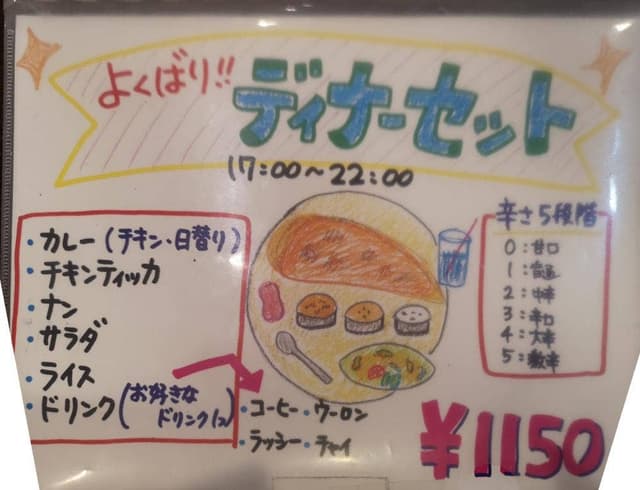 よくばり!!
ディナーセット
17:00〜22:00
・カレー(チキン・日替り)
・チキンティッカ
・ナン
・サラダ
・ライス
・ドリンク(お好きなドリンク1つ)
・コーヒー・ウーロン
・ラッシー・チャイ
辛さ5段階
0:甘口
1:普通
2:中辛
3:辛口
4:大辛
5:激辛
¥1150